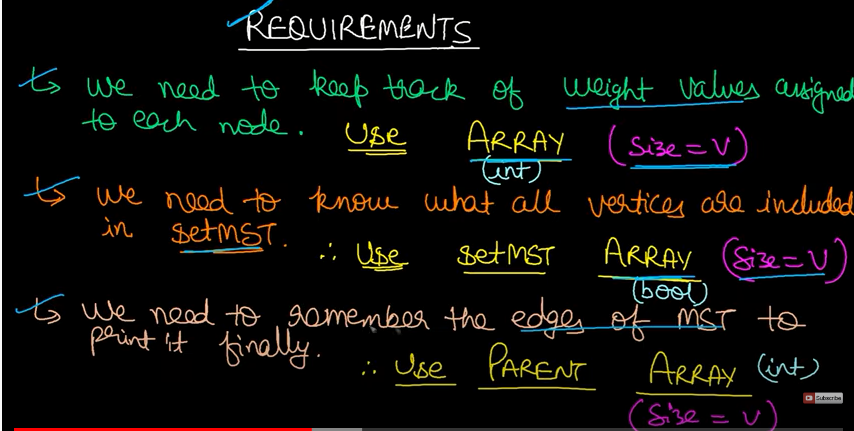 REQUIREMENTS
↳ We need to keep track of weight values assigned
to each node. Use ARRAY (size = V)
(int)
↳ We need to know what all vertices are included
in setMST. ∴ Use setMST ARRAY (size = V)
(bool)
↳ We need to remember the edges of MST to
print it finally.
∴ Use PARENT ARRAY (int)
Subscribe
(size = V)